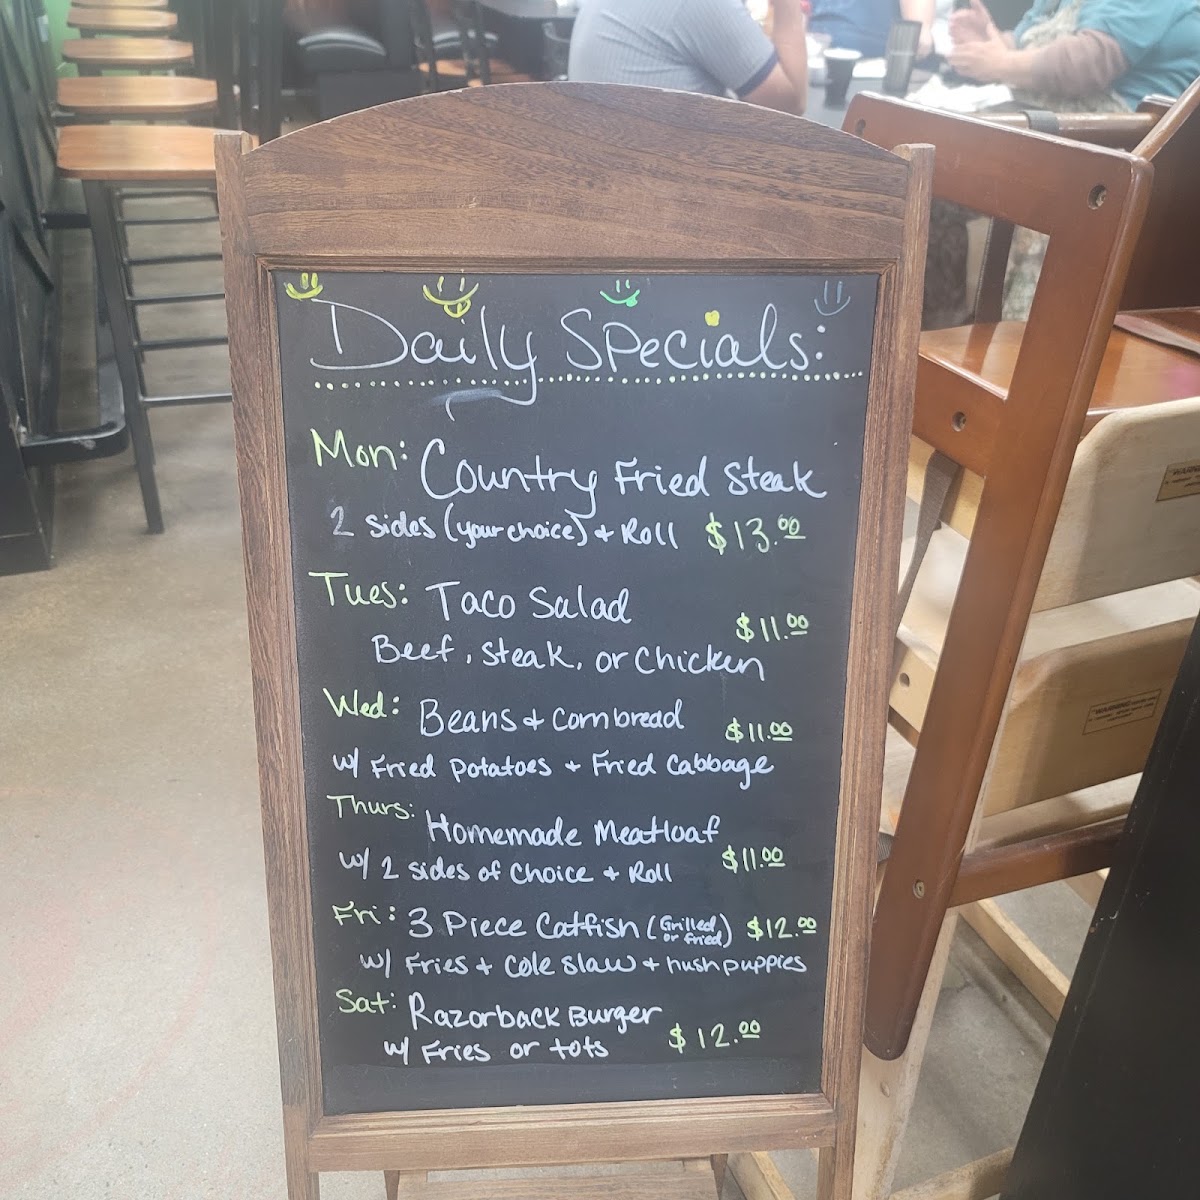 Daily Specials:
Mon: Country Fried Steak
2 sides (your choice) + Roll $13.00
Tues: Taco Salad
$11.00
Beef, Steak, or Chicken
Wed: Beans + Cornbread $11.00
w/ Fried Potatoes + Fried Cabbage
Thurs: Homemade Meatloaf
w/ 2 sides of Choice + Roll $11.00
Fri: 3 Piece Catfish (Grilled or Fried) $12.00
w/ Fries + Cole Slaw + hushpuppies
Sat: Razorback Burger
w/ Fries or tots $12.00
WARNING